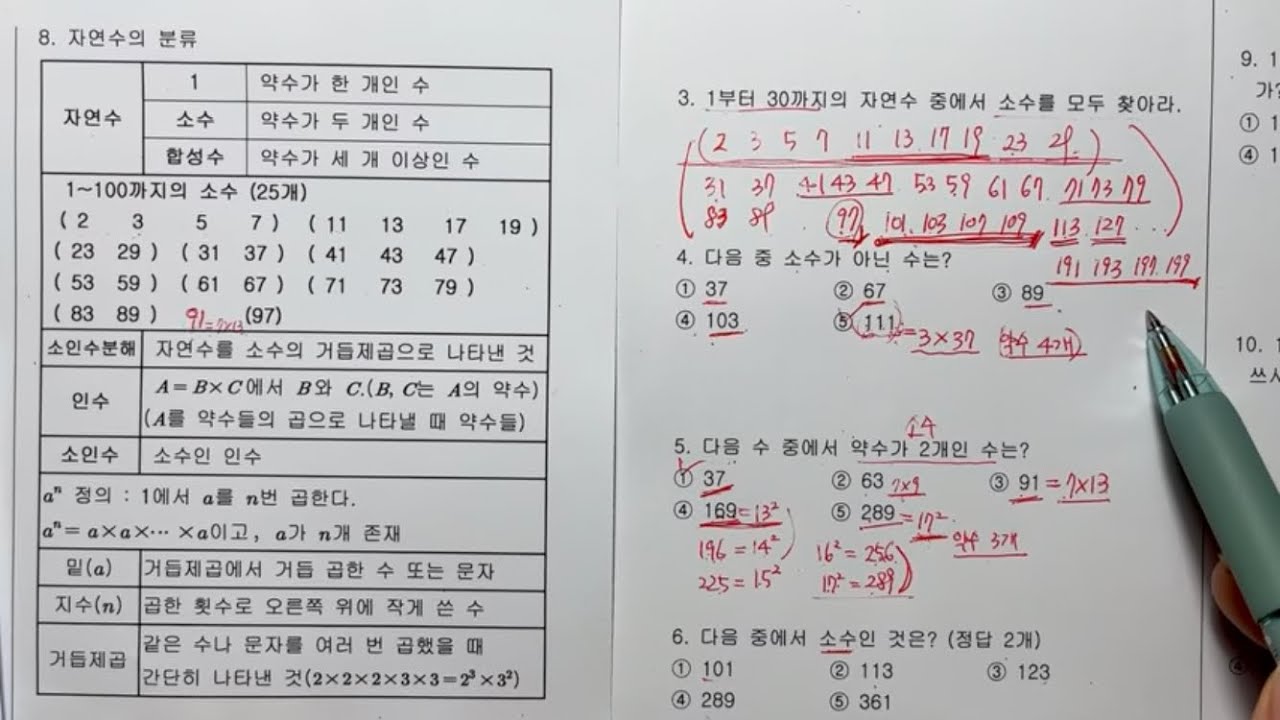 8. 자연수의 분류
자연수
1 약수가 한 개인 수
소수 약수가 두 개인 수
합성수 약수가 세 개 이상인 수
1~100까지의 소수 (25개)
( 2 3 5 7 ) ( 11 13 17 19 )
( 23 29 ) ( 31 37 ) ( 41 43 47 )
( 53 59 ) ( 61 67 ) ( 71 73 79 )
( 83 89 ) 91=7x13 (97)
소인수분해 자연수를 소수의 거듭제곱으로 나타낸 것
인수 A=B×C에서 B와 C.(B, C는 A의 약수)
(A를 약수들의 곱으로 나타낼 때 약수들)
소인수 소수인 인수
aⁿ 정의 : 1에서 a를 n번 곱한다.
aⁿ=a×a×⋯ ×a이고, a가 n개 존재
밑(a) 거듭제곱에서 거듭 곱한 수 또는 문자
지수(n) 곱한 횟수로 오른쪽 위에 작게 쓴 수
거듭제곱 같은 수나 문자를 여러 번 곱했을 때
간단히 나타낸 것(2×2×2×3×3=2³×3²)
3. 1부터 30까지의 자연수 중에서 소수를 모두 찾아라.
( 2 3 5 7 11 13 17 19 23 29 )
31 37 41 43 47 53 59 61 67 71 73 79
83 89 97 101 103 107 109 113 127 ...
191 193 197 199
4. 다음 중 소수가 아닌 수는?
① 37 ② 67 ③ 89
④ 103 ⑤ 111 = 3×37 약수 4개
소수
5. 다음 수 중에서 약수가 2개인 수는?
① 37 ② 63 7x9 ③ 91 = 7×13
④ 169=13² ⑤ 289=17² 약수 3개
196 = 14² 16² = 256
225 = 15² 17² = 289
6. 다음 중에서 소수인 것은? (정답 2개)
① 101 ② 113 ③ 123
④ 289 ⑤ 361
9. 1
가?
① 1
④ 1
10. 1
쓰시
④